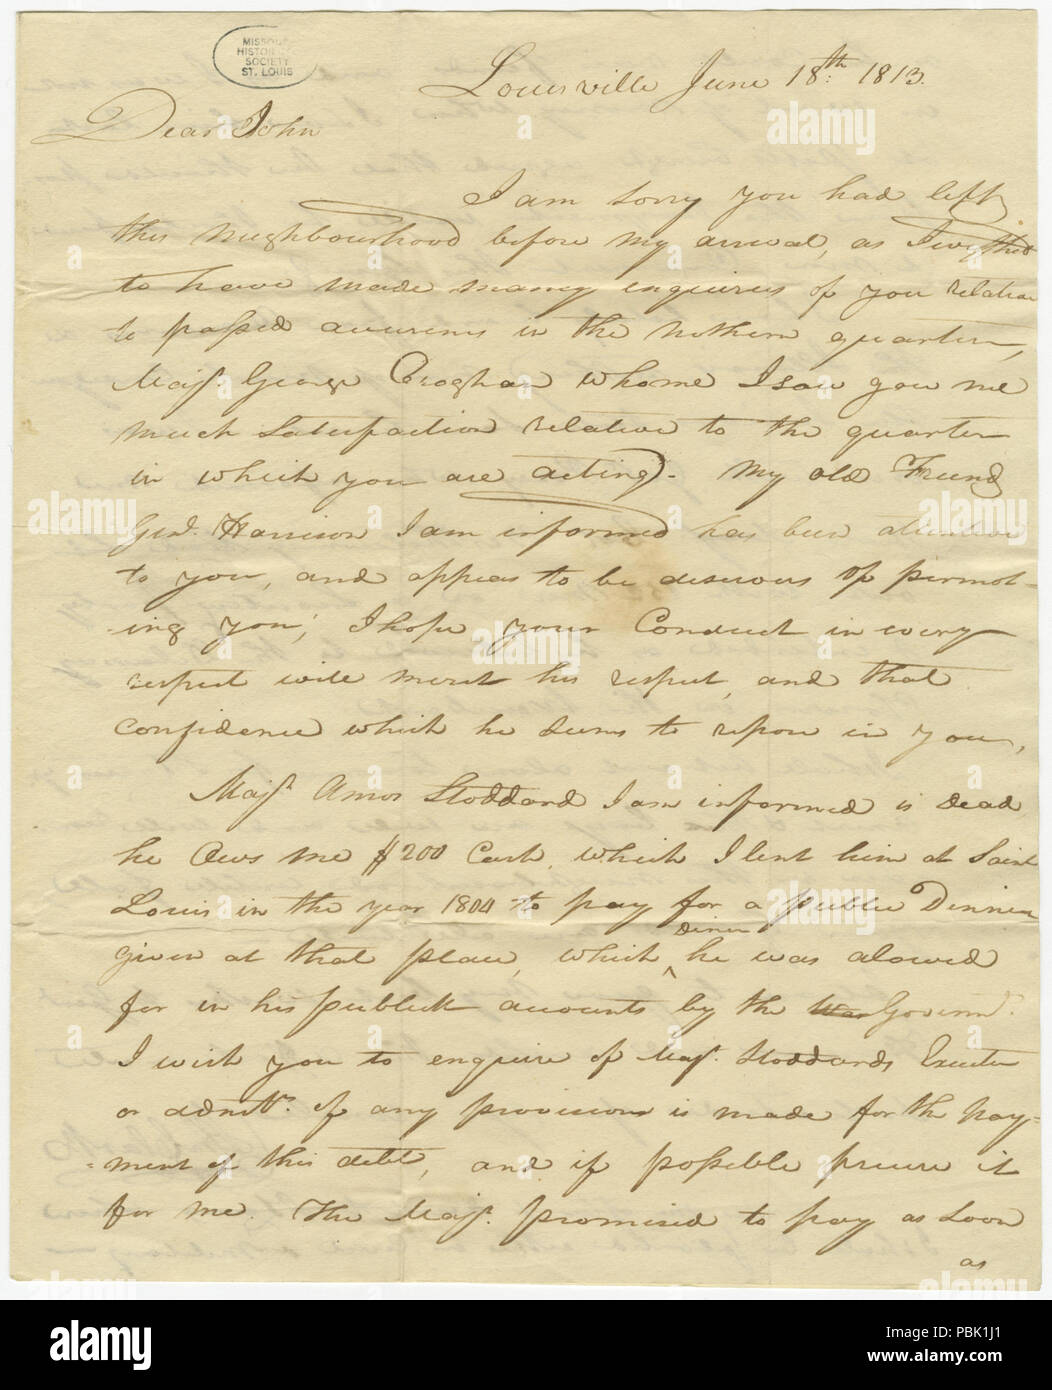 MISSOURI
HISTORICAL
SOCIETY
ST. LOUIS
Louisville June 18th: 1813.
Dear John
I am sorry you had left
this Neighbourhood before my arrival, as I wished
to have made many enquires of you relative
to passed accurences in the Nothern quarter,
Majr. George Croghan whome I saw gave me
much Satisfaction relative to the quarter
in which you are acting. My old Friend
Genl. Harrison I am informed has been attentive
to you, and appeas to be desirous of pirmot-
-ing you; I hope your Conduct in every
respect will merit his respect, and that
confidence which he seems to repose in you,
Majr. Amos Stoddard I am informed is dead
he Ows me $200 Cash, which I lent him at Saint
Louis in the year 1804 to pay for a public Dinner
given at that place, which ^ Diner he was alowed
for in his publick accounts by the War Governt.
I wish you to enquire of Majr. Stoddards Exectr
or admttr. if any provission is made for the pay=
=ment of this debt, and if possible precure it
for me. The Majr. promised to pay as Soon
as
a alamy
alamy
Image ID: PBK1J1
www.alamy.com